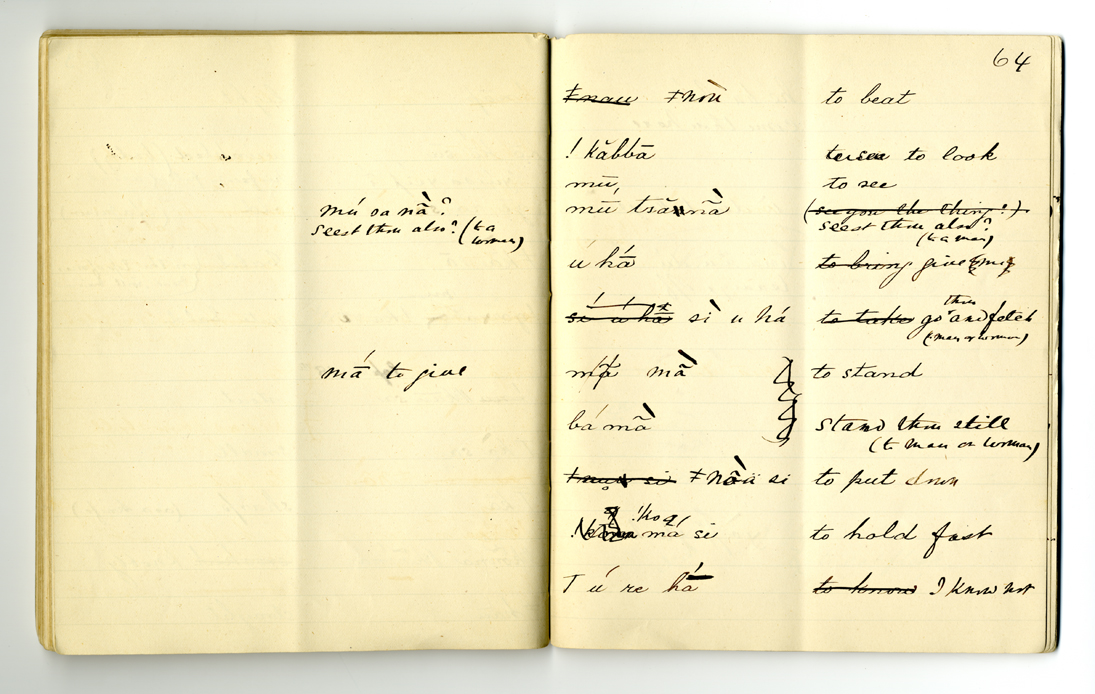 mú oa nã̀?
seest thou also? (to a
woman)
má to give
64
ǂnau ǂnoù to beat
!kăbbā to look
mū, to see
mū tsă nã̀ (see you the thing?)
seest thou also?
(to a man)
ú há to bring give
sí ú hā sì u há to take go thou and fetch
(man or woman)
mã̀ to stand
bá mã̀ stand thou still
(to man or woman)
si ǂnòu si to put down
!ko má si to hold fast
T ú re há to know I know not